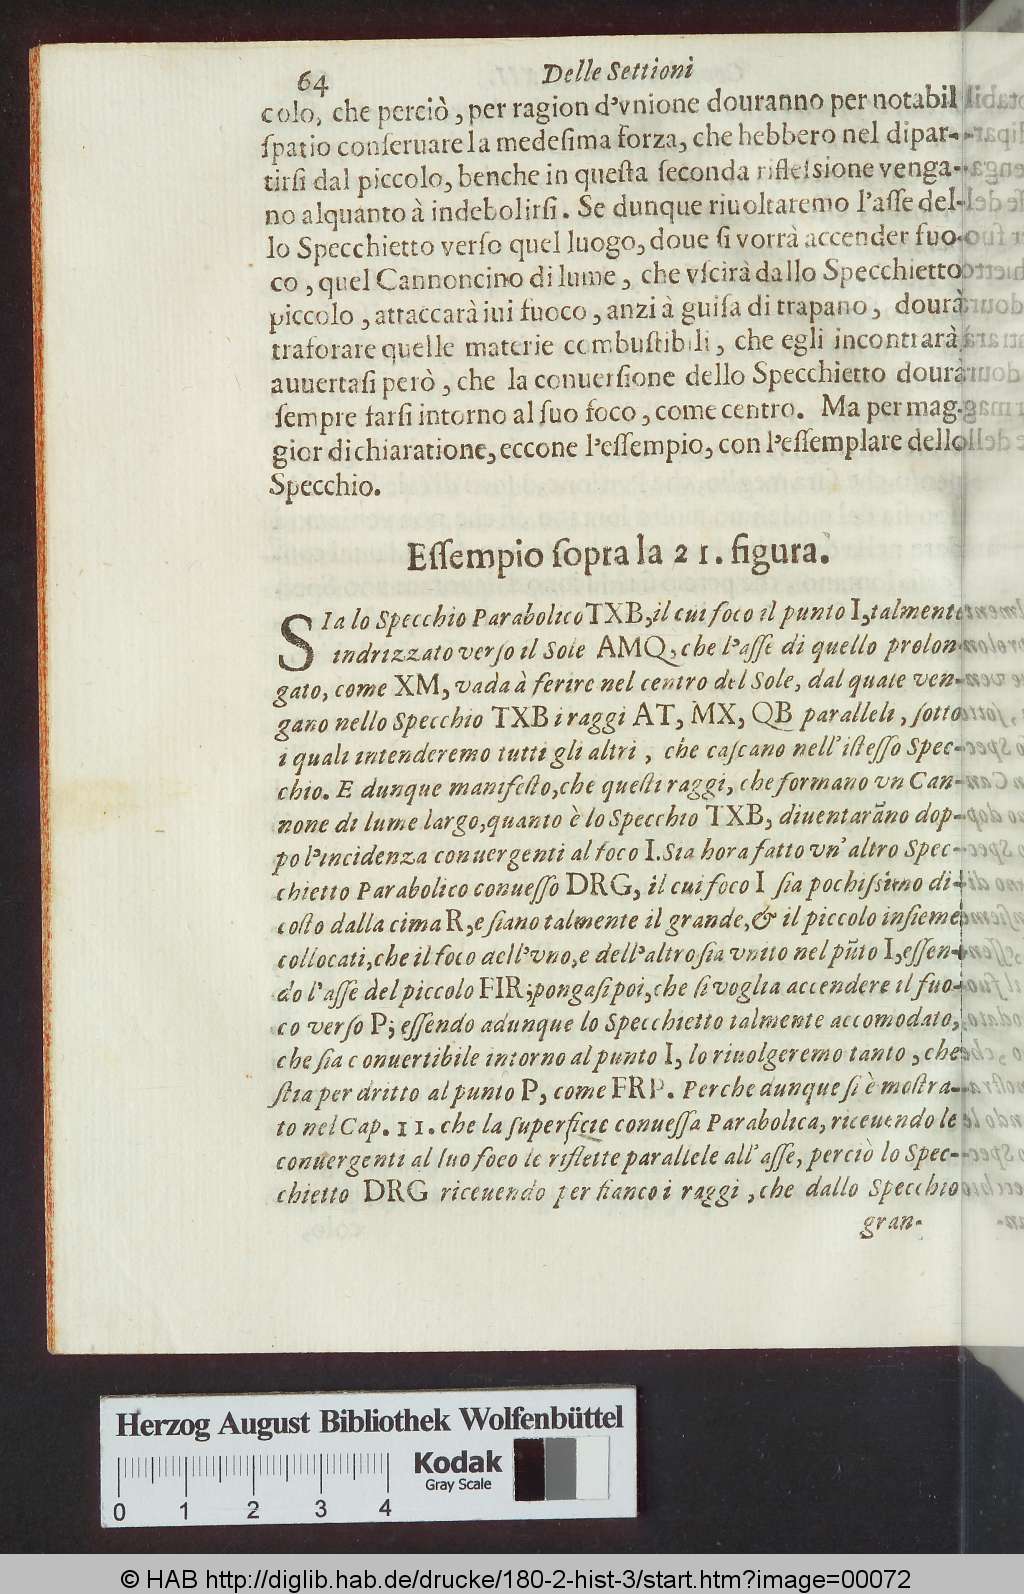 64 Delle Settioni
colo, che perciò, per ragion d'vnione douranno per notabil
ſpatio conſeruare la medeſima forza, che hebbero nel dipar-
tirſi dal piccolo, benche in queſta ſeconda rifleſsione venga-
no alquanto à indebolirſi. Se dunque riuoltaremo l'aſſe del-
lo Specchietto verſo quel luogo, doue ſi vorrà accender fuo-
co, quel Cannoncino di lume, che vſcirà dallo Specchietto
piccolo, attaccarà iui fuoco, anzi à guiſa di trapano, dourà
traforare quelle materie combuſtibili, che egli incontrarà,
auuertaſi però, che la conuerſione dello Specchietto dourà
ſempre farſi intorno al ſuo foco, come centro. Ma per mag-
gior dichiaratione, eccone l'eſſempio, con l'eſſemplare dello
Specchio.
Eſſempio ſopra la 21. figura.
SIa lo Specchio Parabolico TXB, il cui foco il punto I, talmente
indrizzato verſo il Sole AMQ, che l'aſſe di quello prolon-
gato, come XM, vada à ferire nel centro del Sole, dal quale ven-
gano nello Specchio TXB i raggi AT, MX, QB paralleli, ſotto
i quali intenderemo tutti gli altri, che caſcano nell'iſteſſo Spec-
chio. E dunque manifeſto, che queſti raggi, che formano vn Can-
none di lume largo, quanto è lo Specchio TXB, diuentarãno dop-
po l'incidenza conuergenti al foco I. Sia hora fatto vn'altro Spec-
chietto Parabolico conueſſo DRG, il cui foco I ſia pochiſsimo di-
coſto dalla cima R, e ſiano talmente il grande, & il piccolo inſieme
collocati, che il foco dell'vno, e dell'altro ſia vnito nel pũto I, eſſen-
do l'aſſe del piccolo FIR; pongaſi poi, che ſi voglia accendere il fuo-
co verſo P; eſſendo adunque lo Specchietto talmente accomodato,
che ſia conuertibile intorno al punto I, lo riuolgeremo tanto, che
ſtia per dritto al punto P, come FRP. Perche dunque ſi è moſtra-
to nel Cap. 11. che la ſuperficie conueſſa Parabolica, riceuendo le
conuergenti al ſuo foco le riflette parallele all'aſſe, perciò lo Spec-
chietto DRG riceuendo per fianco i raggi, che dallo Specchio
gran-
Herzog August Bibliothek Wolfenbüttel
Kodak
Gray Scale
0 1 2 3 4
© HAB http://diglib.hab.de/drucke/180-2-hist-3/start.htm?image=00072